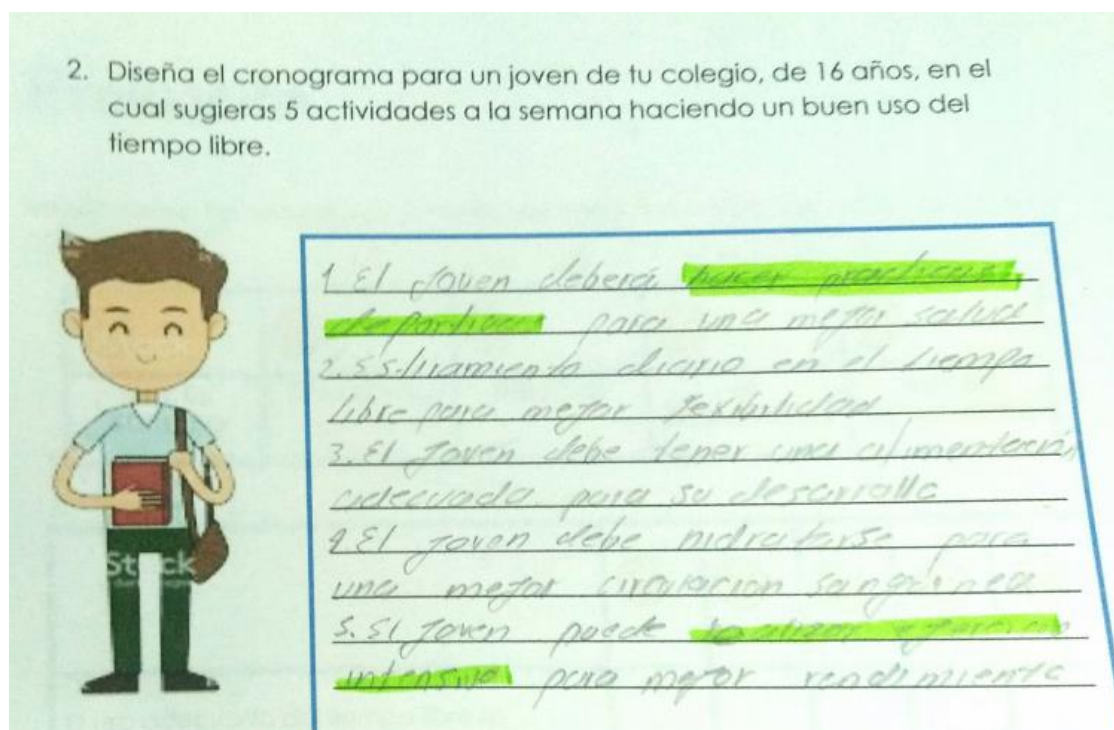 2. Diseña el cronograma para un joven de tu colegio, de 16 años, en el
cual sugieras 5 actividades a la semana haciendo un buen uso del
tiempo libre.
1 El Joven deberá hacer practicas
deportivas para una mejor salud
2. Estiramiento diario en el tiempo
libre para mejor flexibilidad
3. El Joven debe tener una alimentación
adecuada para su desarrollo
4 El joven debe hidratarse para
una mejor circulacion sanguinea
5. El Joven puede realizar ejercicio
intensivo para mejor rendimiento